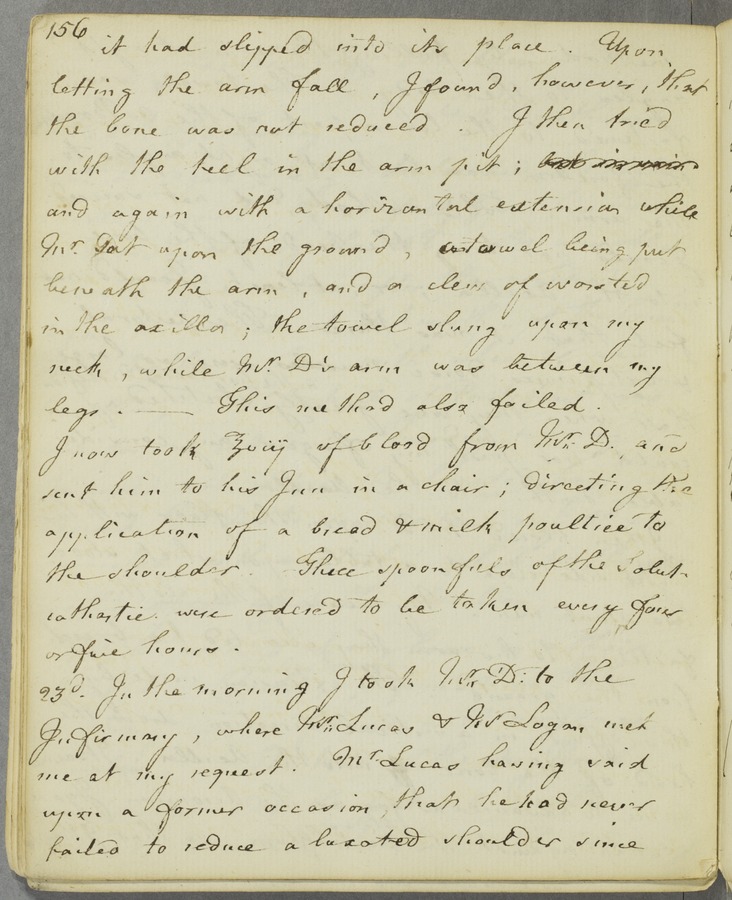 156
it had slipped into its place. Upon
letting the arm fall, I found, however, that
the bone was not reduced. I then tried
with the heel in the arm pit; but in vain
and again with a horizontal extension while
Mr. sat upon the ground, a towel being put
beneath the arm, and a clew of worsted
in the axilla; the towel slung upon my
neck, while Mr. D's arm was between my
legs. — This method also failed.
I now took ℥viij of blood from Mr. D. and
sent him to his Inn in a chair; directing the
application of a bread & milk poultice to
the shoulder. Three spoonfuls of the Solut.
cathartic. were ordered to be taken every four
or five hours.
23d. In the morning I took Mr. D. to the
Infirmary, where Mr. Lucas & Mr Logan met
me at my request. Mr Lucas having said
upon a former occasion, that he had never
failed to reduce a luxated shoulder since